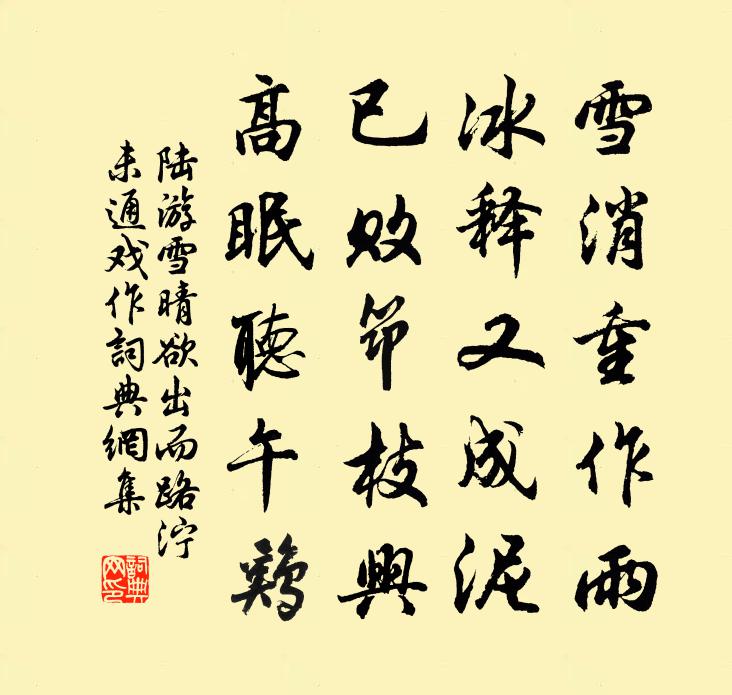 雪消重作雨
冰释又成泥
已败笻枝興
高眠聽午鷄
陆游雪晴欲出而路泞
未通戏作詞典網集
詞典网印